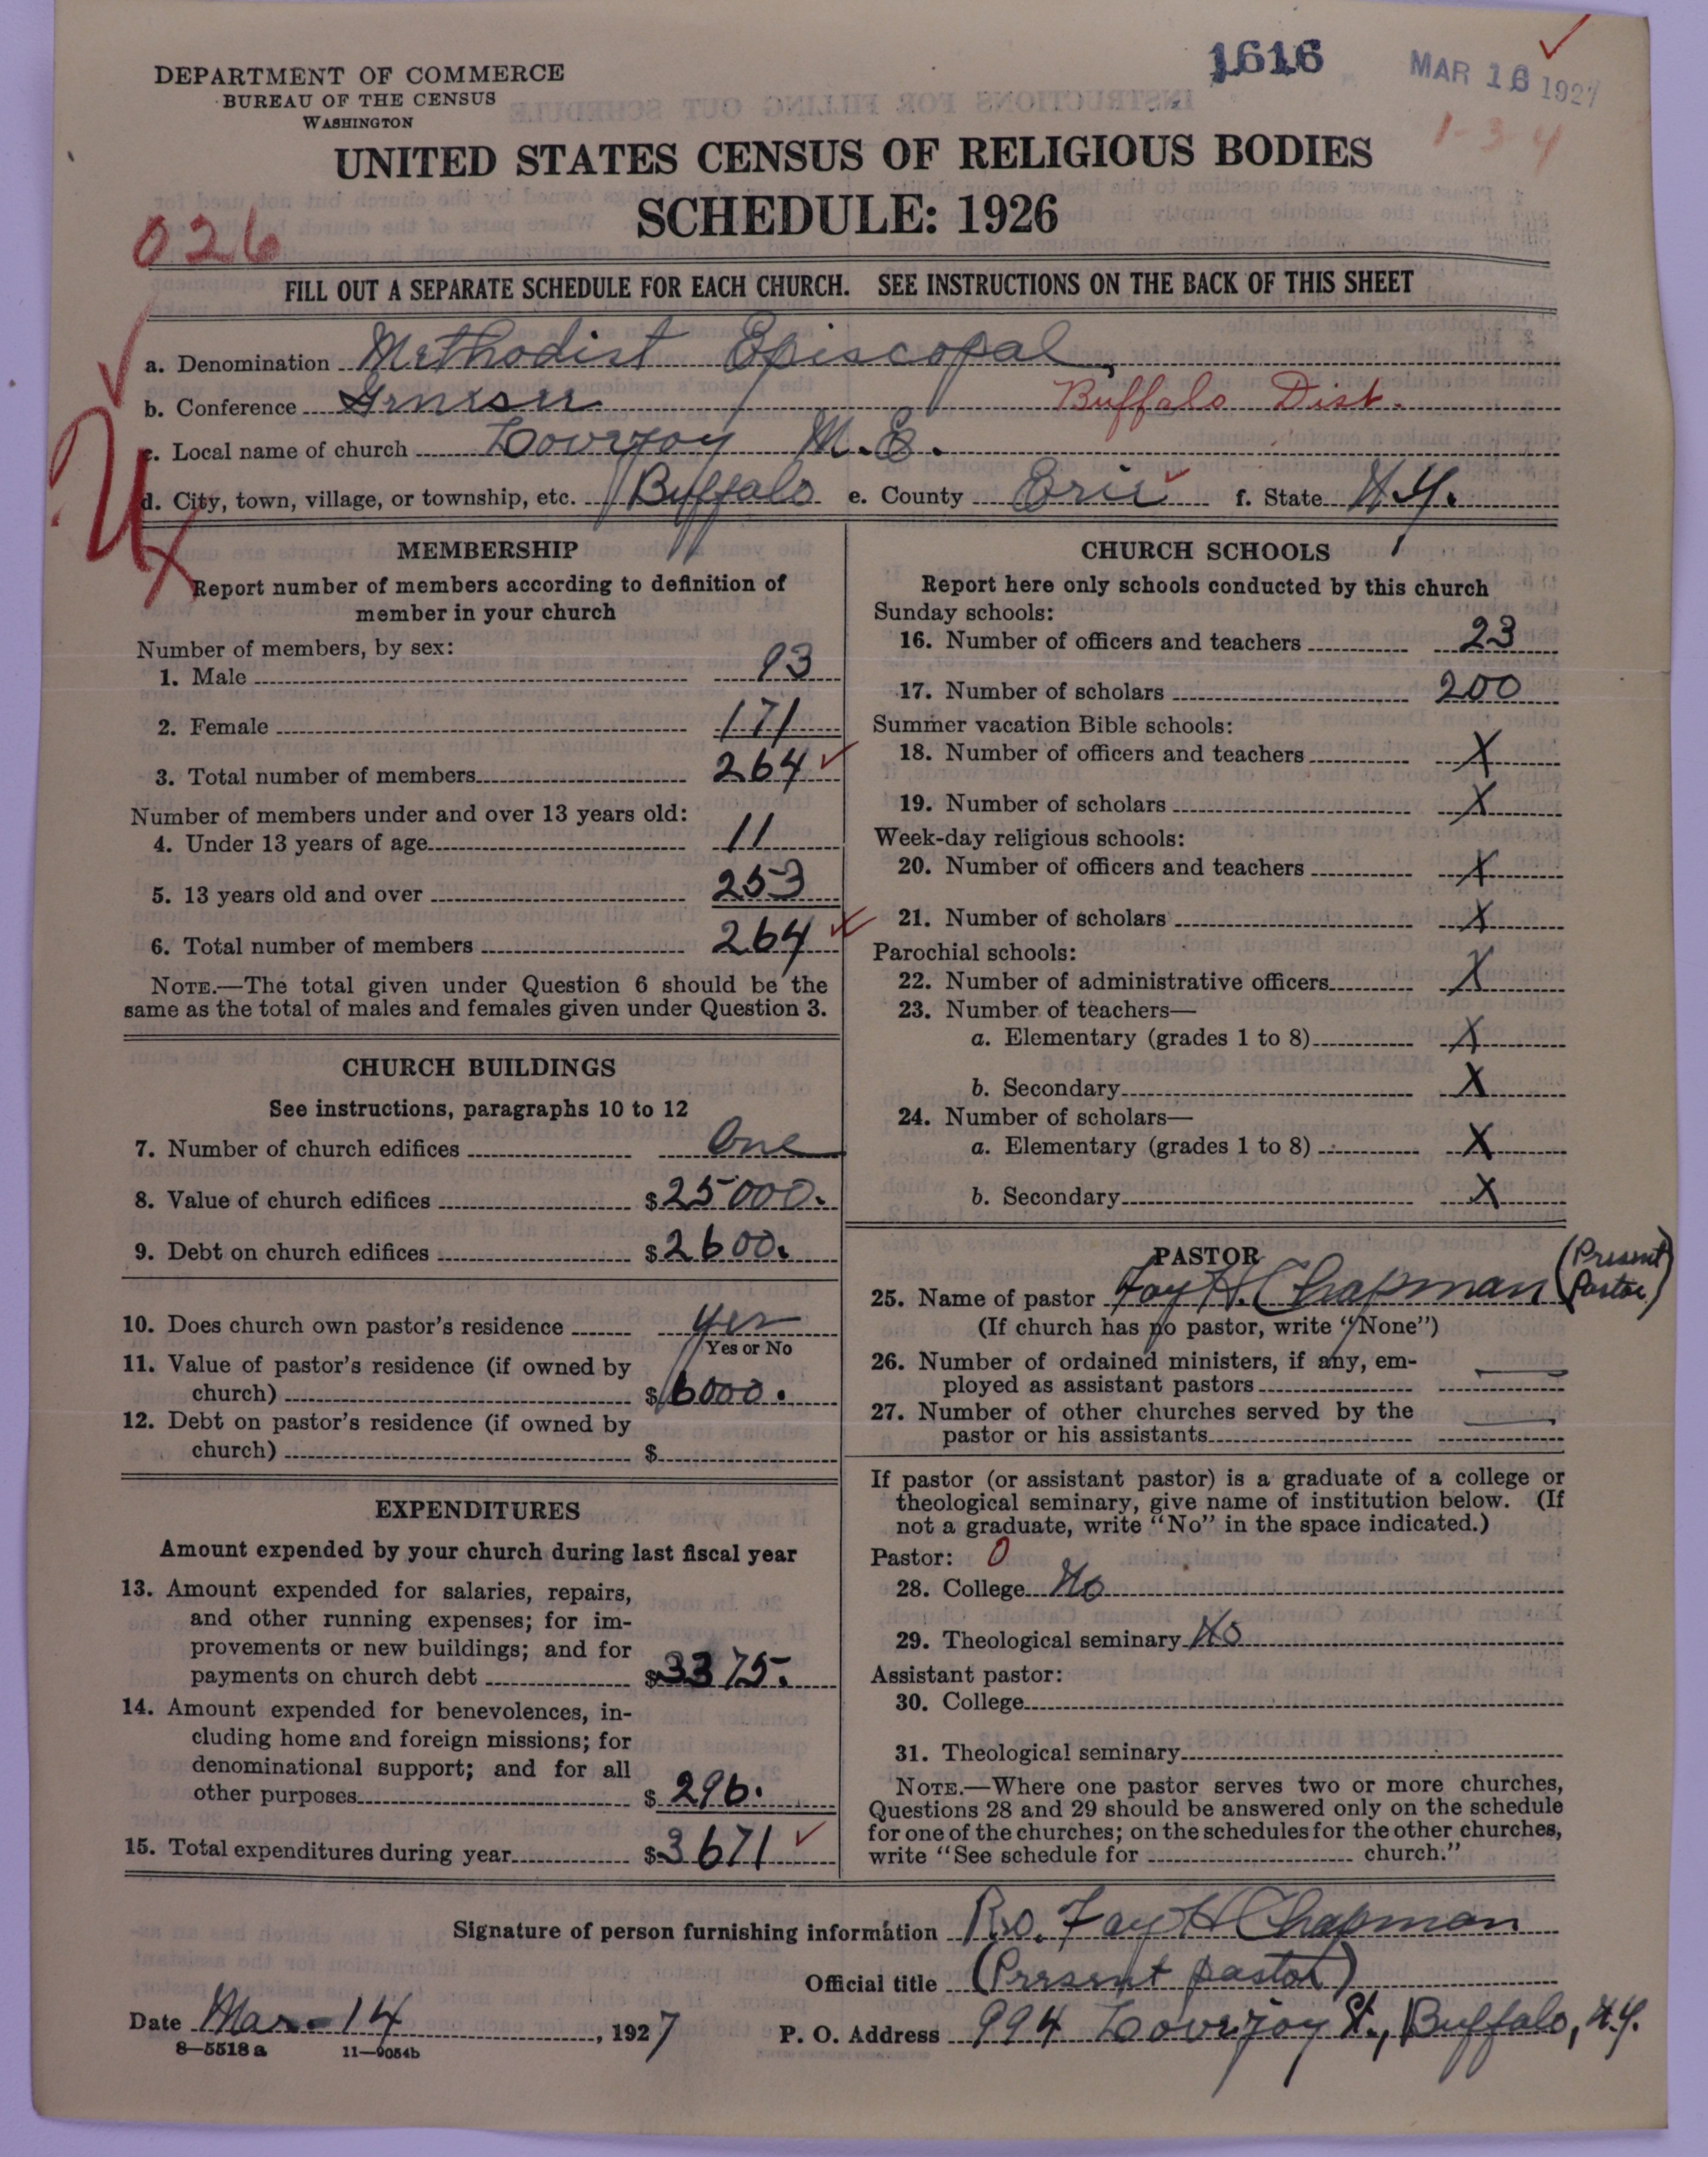 1616
MAR 16 1927
1-3-4
DEPARTMENT OF COMMERCE
BUREAU OF THE CENSUS
WASHINGTON
UNITED STATES CENSUS OF RELIGIOUS BODIES
SCHEDULE: 1926
026
FILL OUT A SEPARATE SCHEDULE FOR EACH CHURCH. SEE INSTRUCTIONS ON THE BACK OF THIS SHEET
a. Denomination Methodist Episcopal
b. Conference Genesee Buffalo Dist.
c. Local name of church Lovejoy M.E.
d. City, town, village, or township, etc. Buffalo e. County Erie f. State N.Y.
MEMBERSHIP
Report number of members according to definition of
member in your church
Number of members, by sex:
1. Male 93
2. Female 171
3. Total number of members 264
Number of members under and over 13 years old:
4. Under 13 years of age 11
5. 13 years old and over 253
6. Total number of members 264
NOTE.—The total given under Question 6 should be the
same as the total of males and females given under Question 3.
CHURCH BUILDINGS
See instructions, paragraphs 10 to 12
7. Number of church edifices One
8. Value of church edifices $25000.
9. Debt on church edifices $2600.
10. Does church own pastor's residence Yes
Yes or No
11. Value of pastor's residence (if owned by
church) $6000.
12. Debt on pastor's residence (if owned by
church) $
EXPENDITURES
Amount expended by your church during last fiscal year
13. Amount expended for salaries, repairs,
and other running expenses; for im-
provements or new buildings; and for
payments on church debt $3375.
14. Amount expended for benevolences, in-
cluding home and foreign missions; for
denominational support; and for all
other purposes $296.
15. Total expenditures during year $3671
CHURCH SCHOOLS
Report here only schools conducted by this church
Sunday schools:
16. Number of officers and teachers 23
17. Number of scholars 200
Summer vacation Bible schools:
18. Number of officers and teachers X
19. Number of scholars X
Week-day religious schools:
20. Number of officers and teachers X
21. Number of scholars X
Parochial schools:
22. Number of administrative officers X
23. Number of teachers—
a. Elementary (grades 1 to 8) X
b. Secondary X
24. Number of scholars—
a. Elementary (grades 1 to 8) X
b. Secondary X
PASTOR
25. Name of pastor Fay H. Chapman (Present Pastor)
(If church has no pastor, write "None")
26. Number of ordained ministers, if any, em-
ployed as assistant pastors —
27. Number of other churches served by the
pastor or his assistants —
If pastor (or assistant pastor) is a graduate of a college or
theological seminary, give name of institution below. (If
not a graduate, write "No" in the space indicated.)
Pastor: 0
28. College No
29. Theological seminary No
Assistant pastor:
30. College
31. Theological seminary
NOTE.—Where one pastor serves two or more churches,
Questions 28 and 29 should be answered only on the schedule
for one of the churches; on the schedules for the other churches,
write "See schedule for church."
Signature of person furnishing information Fay H Chapman
Official title (Present pastor)
Date Mar. 14, 1927 P. O. Address 994 Lovejoy St., Buffalo, N.Y.
8—5518a 11—9054b